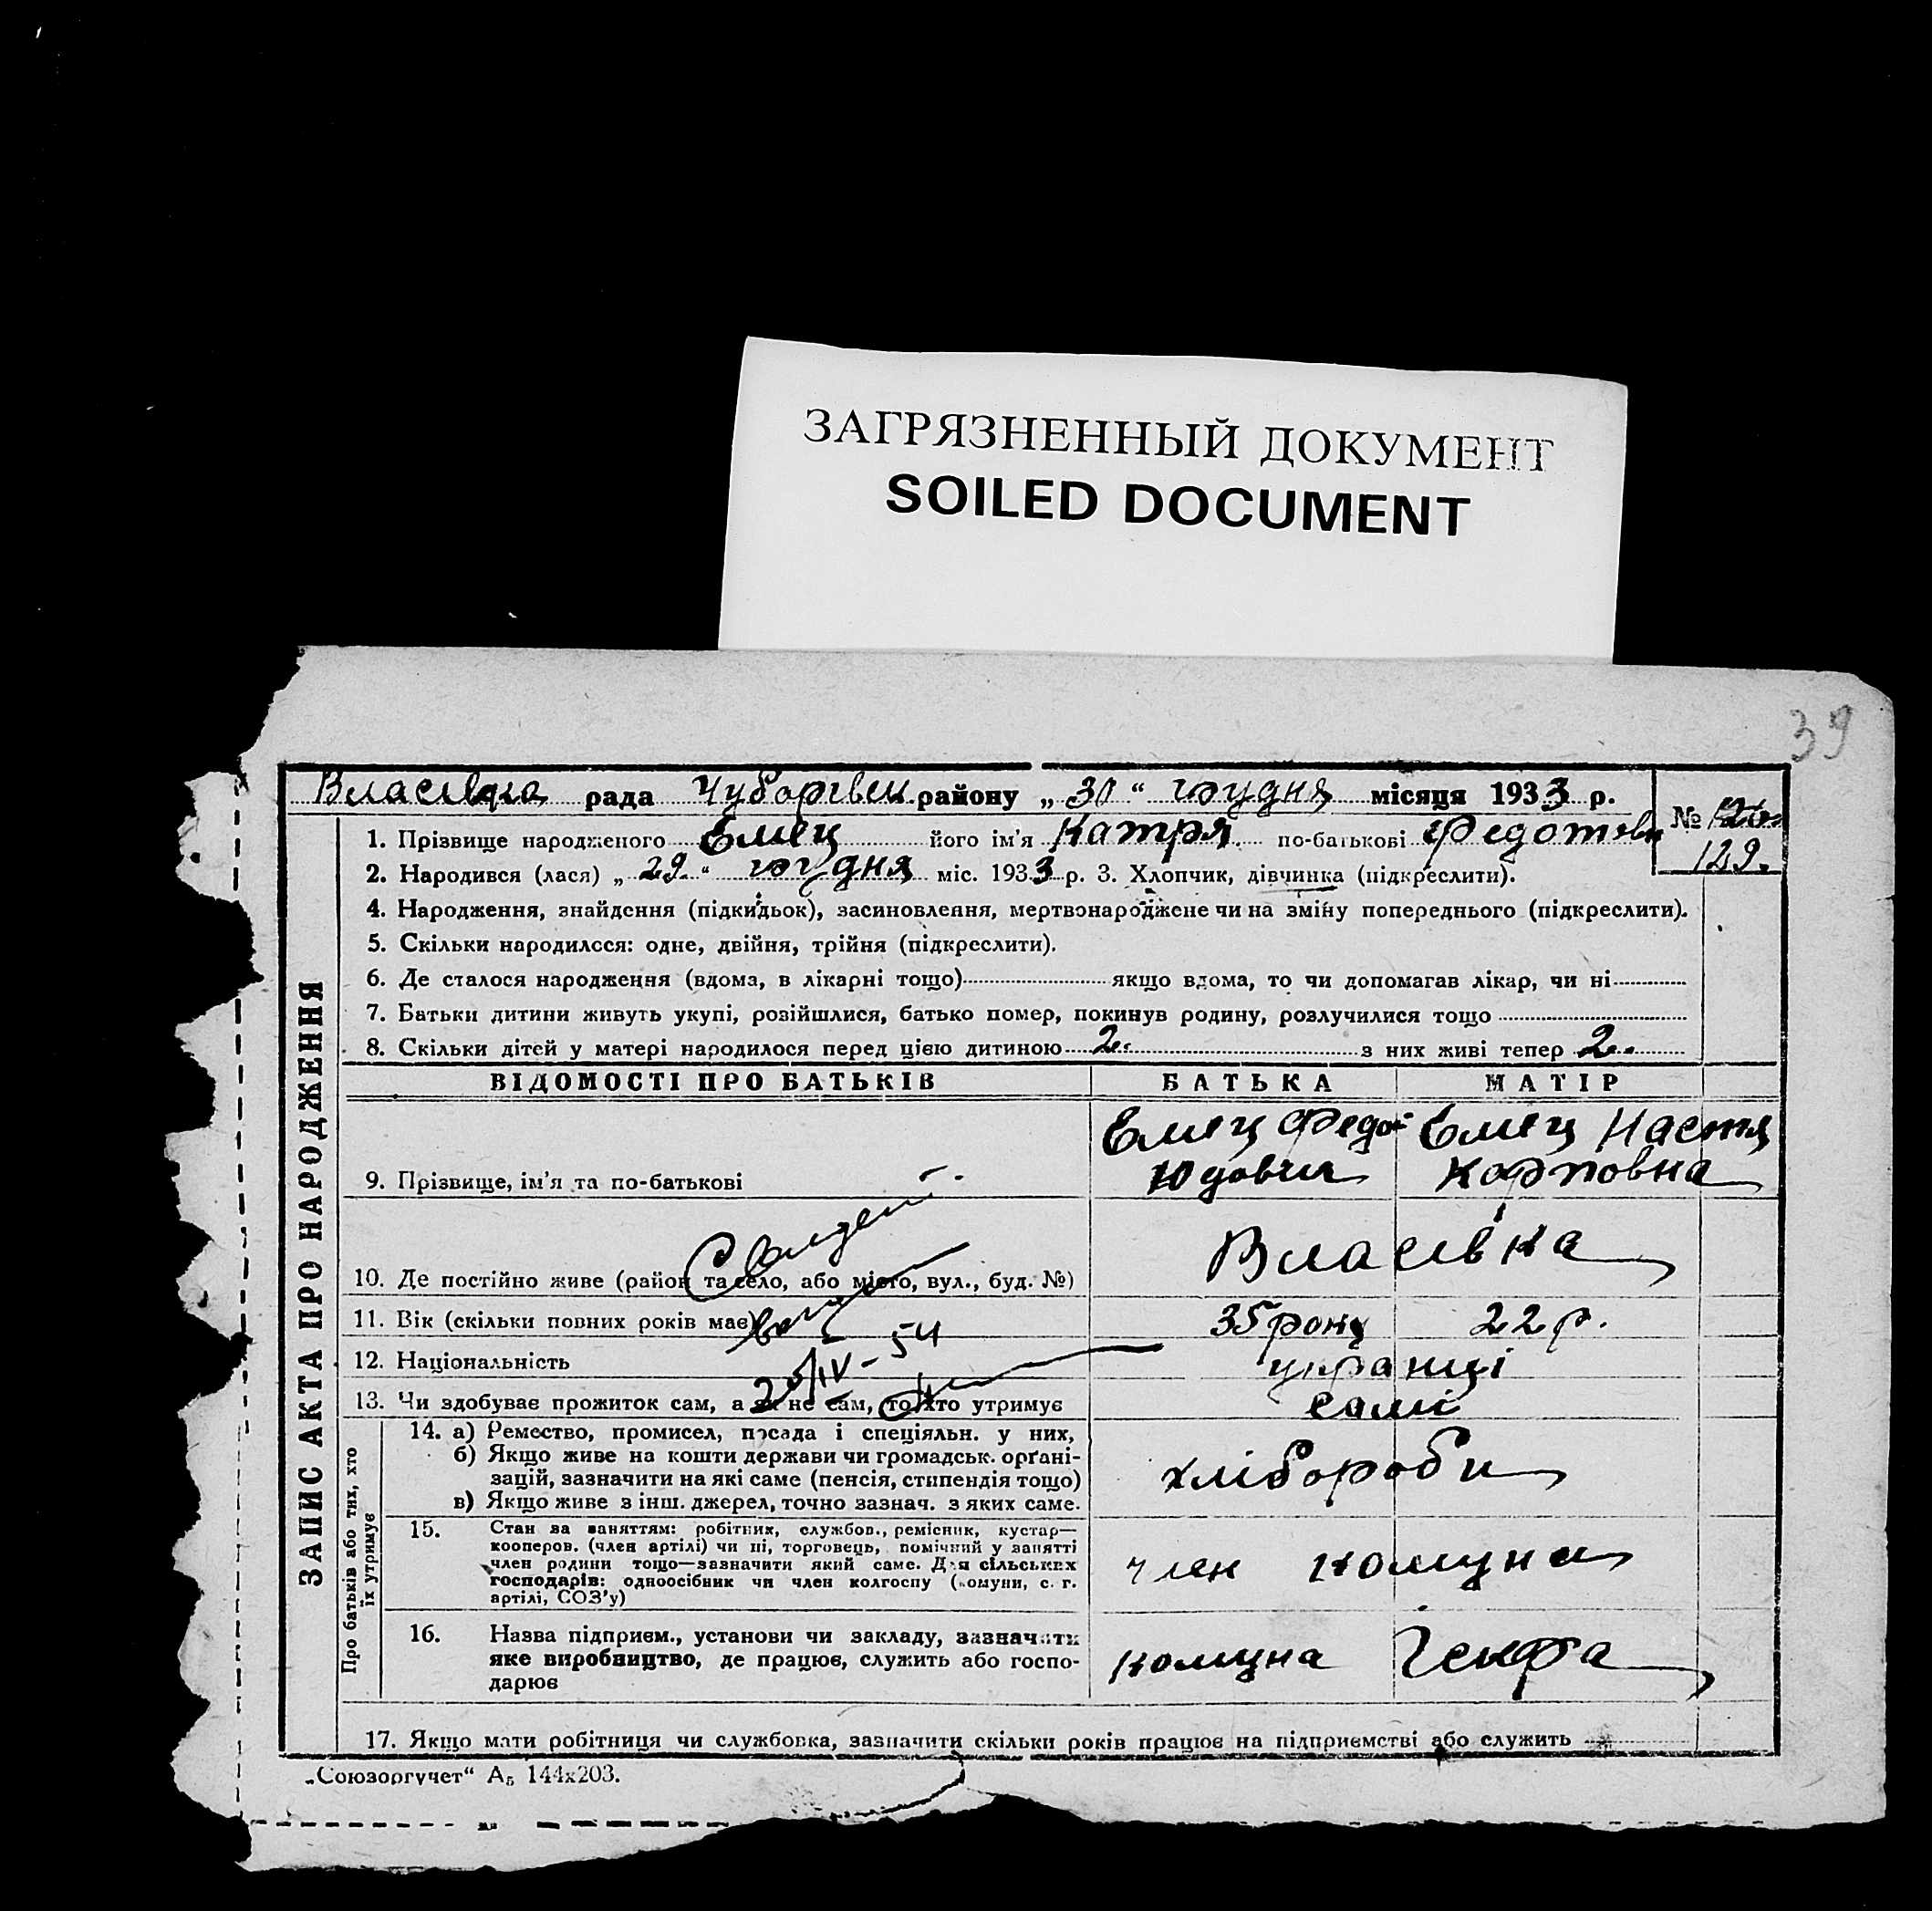 ЗАГРЯЗНЕННЫЙ ДОКУМЕНТ
SOILED DOCUMENT
39
Власівка рада Чубарівськ району „30“ грудня місяця 1933 р.
№
129.
1. Прізвище народженого Емец його ім'я Катря по-батькові Федотовн
2. Народився (лася) „29.“ грудня міс. 1933 р. 3. Хлопчик, дівчинка (підкреслити).
4. Народження, знайдення (підкидьок), засиновлення, мертвонароджене чи на зміну попереднього (підкреслити).
5. Скільки народилося: одне, двійня, трійня (підкреслити).
6. Де сталося народження (вдома, в лікарні тощо) якщо вдома, то чи допомагав лікар, чи ні
7. Батьки дитини живуть укупі, розійшлися, батько помер, покинув родину, розлучилися тощо
8. Скільки дітей у матері народилося перед цією дитиною 2. з них живі тепер 2.
ЗАПИС АКТА ПРО НАРОДЖЕННЯ
ВІДОМОСТІ ПРО БАТЬКІВ БАТЬКА МАТІР
Емец Федот Емец Настя
9. Прізвище, ім'я та по-батькові Юдович Карповна
10. Де постійно живе (район та село, або місто, вул., буд. №) Власівка
11. Вік (скільки повних років має) 35 року 22 р.
12. Національність українці
25/IV-54
13. Чи здобуває прожиток сам, а як не сам, то хто утримує самі
Про батьків або тих, хто
їх утримує
14. а) Ремество, промисел, посада і спеціяльн. у них,
б) Якщо живе на кошти держави чи громадськ. орґані-
зацій, зазначити на які саме (пенсія, стипендія тощо) хлібороби
в) Якщо живе з інш. джерел, точно зазнач. з яких саме.
15. Стан за заняттям: робітник, службов., ремісник, кустар—
кооперов. (член артілі) чи ні, торговець, помічний у занятті
член родини тощо—зазначити який саме. Для сільських член комуни
господарів: одноосібник чи член колгоспу (комуни, с. г.
артілі, СОЗ'у)
16. Назва підприєм., установи чи закладу, зазначити
яке виробництво, де працює, служить або госпо- комуна
дарює
17. Якщо мати робітниця чи службовка, зазначити скільки років працює на підприємстві або служить
„Союзоргучет“ А₅ 144x203.